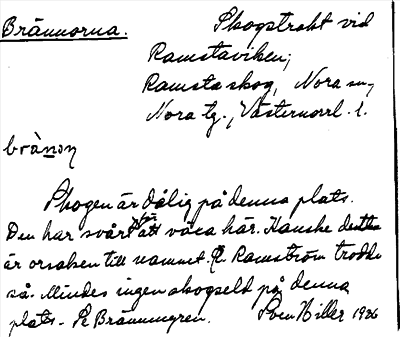 Brännorna.
Skogstrakt vid
Ramstaviken,
Ramsta skog, Nora sn,
Nora tg., Västernorrl. l.
brànɔn
Skogen är dålig på denna plats.
Den har svårt för att växa här. Kanske detta
är orsaken till namnet. E. Ramström trodde
så. Mindes ingen skogseld på denna
plats. - Se Bränningren. Sven Hiller 1926